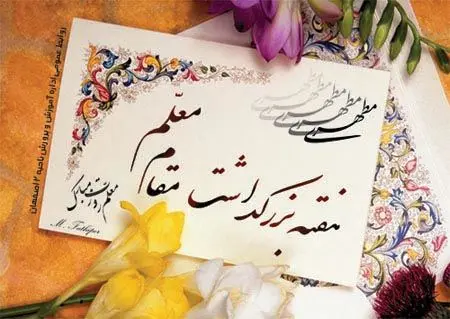 مطهری
مطهری
مطهری
مطهری
مطهری
هفته بزرگداشت
مقام
معلّم
معلم روزت مبارک
M. Fathipor
روابط عمومی اداره آموزش و پرورش ناحیه ۲ اصفهان